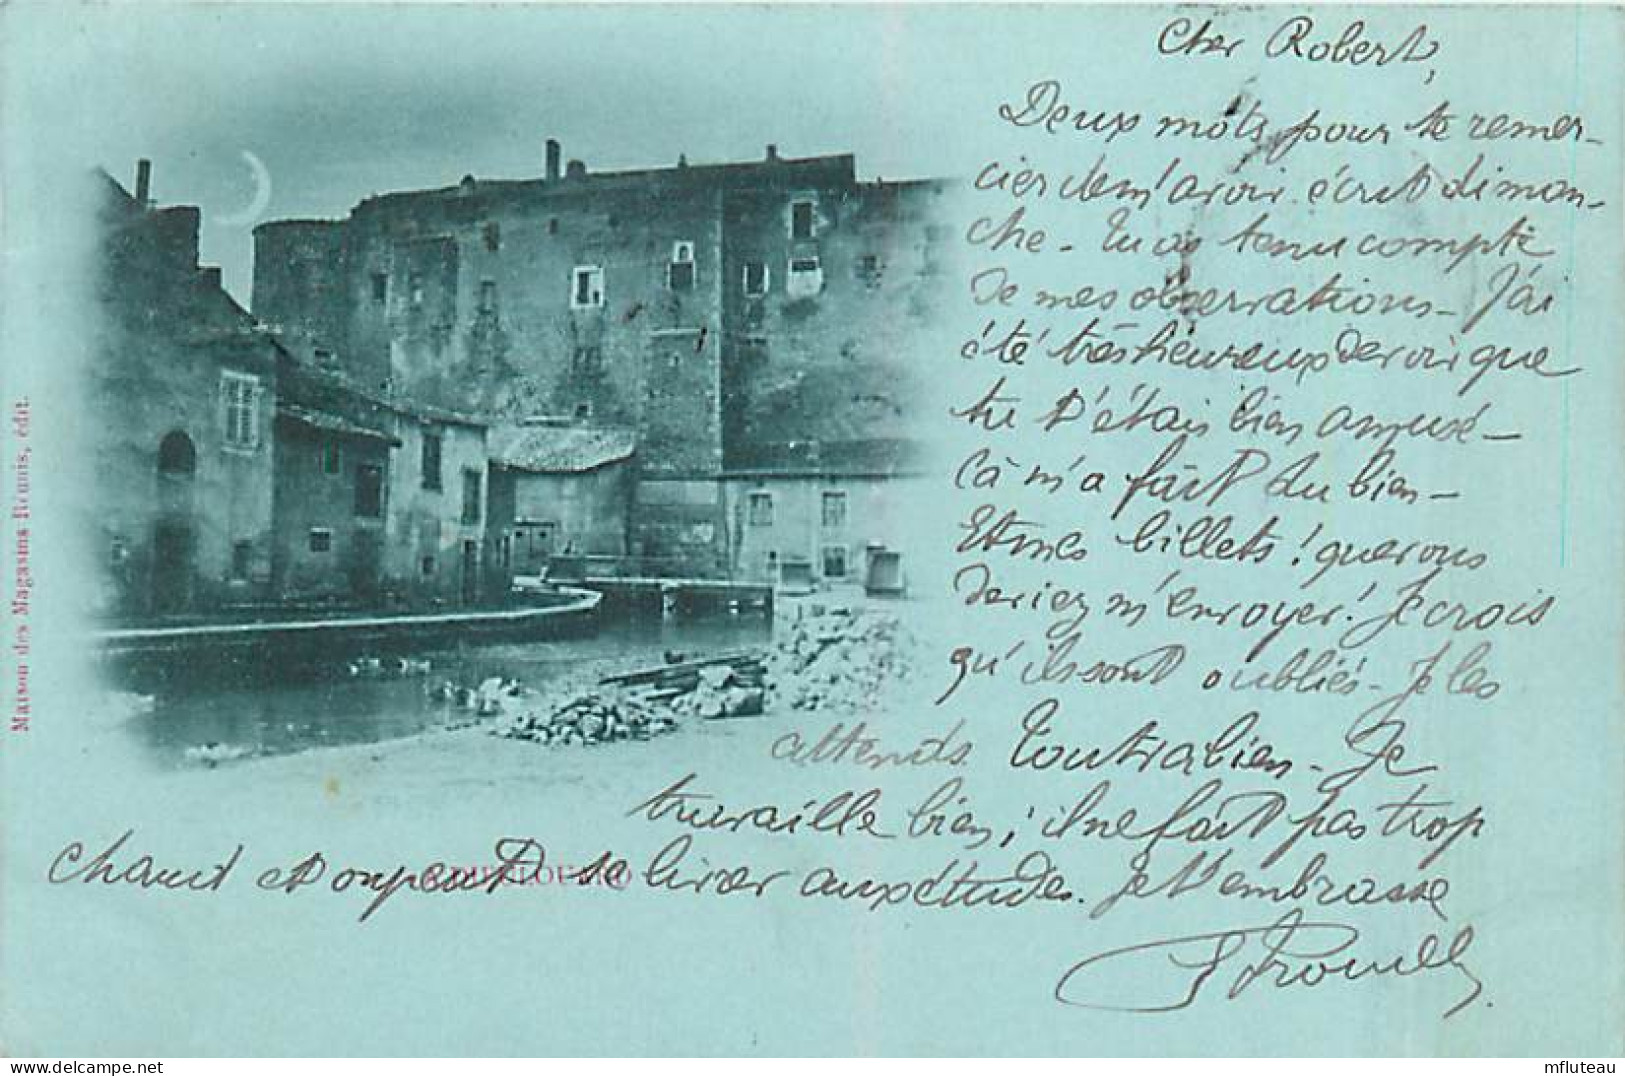 Cher Robert,
Deux mots pour te remer-
cier de m'avoir écrit diman-
che - Tu as tenu compte
de mes observations - J'ai
été très heureux de voir que
tu t'étais bien amusé -
Cà m'a fait du bien -
Et mes billets ! que vous
deviez m'envoyer ! Je crois
qu'ils sont oubliés - Je les
attends. Tout va bien - Je
travaille bien ; il ne fait pas trop
chaud et on peut se livrer aux études. Je t'embrasse
DIEULOUARD
Maison des Magasins Réunis, édit.
mfluteau